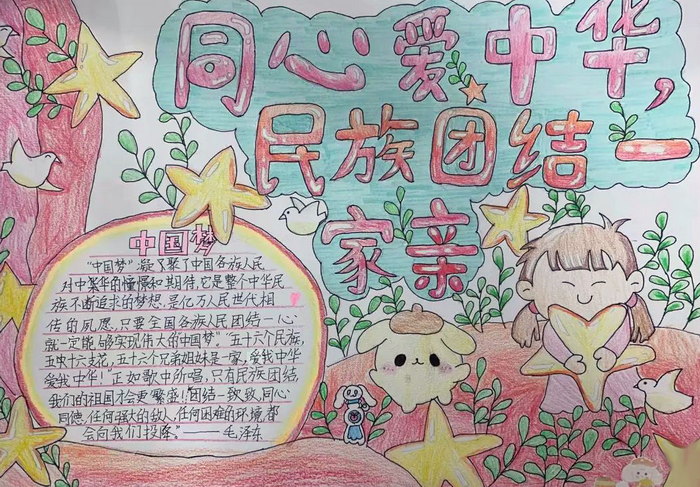 同心爱中华,
民族团结一
家亲
中国梦
"中国梦"凝了聚了中国各族人民
对中繁华的憧憬和期待,它是整个中华民
族不断追求的梦想.是亿万人民世代相
传的夙愿.只要全国各族人民团结一心.
就一定能够实现伟大的中国梦"五十六个民族,
五十六支花,五十六个兄弟姐妹是一家,爱我中华
爱我中华!"正如歌中所唱,只有民族团结,
我们的祖国才会更繁盛!"团结一致,同心
同德,任何强大的敌人,任何困难的环境,都
会向我们投降。"——毛泽东